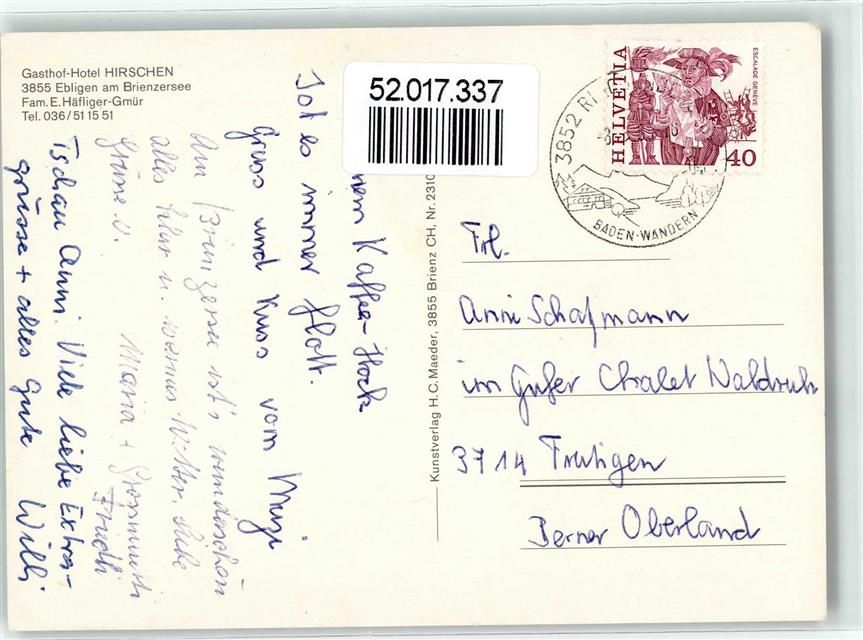 Gasthof-Hotel HIRSCHEN
3855 Ebligen am Brienzersee
Fam. E. Häfliger-Gmür
Tel. 036/51 15 51
52.017.337
nem Kaffee-Hock
Ist es immer flott.
Gruss und Kuss vom Muzi
Am Brienzersee ist's wunderschön
alles klar u. warmes Wetter. Liebe
Grüsse v.
Maria + Grossmutti
Friedli
Tschau Anni. Viele liebe Extra-
grüsse + alles Gute Willi
Kunstverlag H. C. Maeder, 3855 Brienz CH, Nr. 2310
HELVETIA
ESCALADE GENÈVE
40
3852 RI
BADEN-WANDERN
Frl.
Anni Schafmann
im Gufer Chalet Waldruh
3714 Frutigen
Berner Oberland